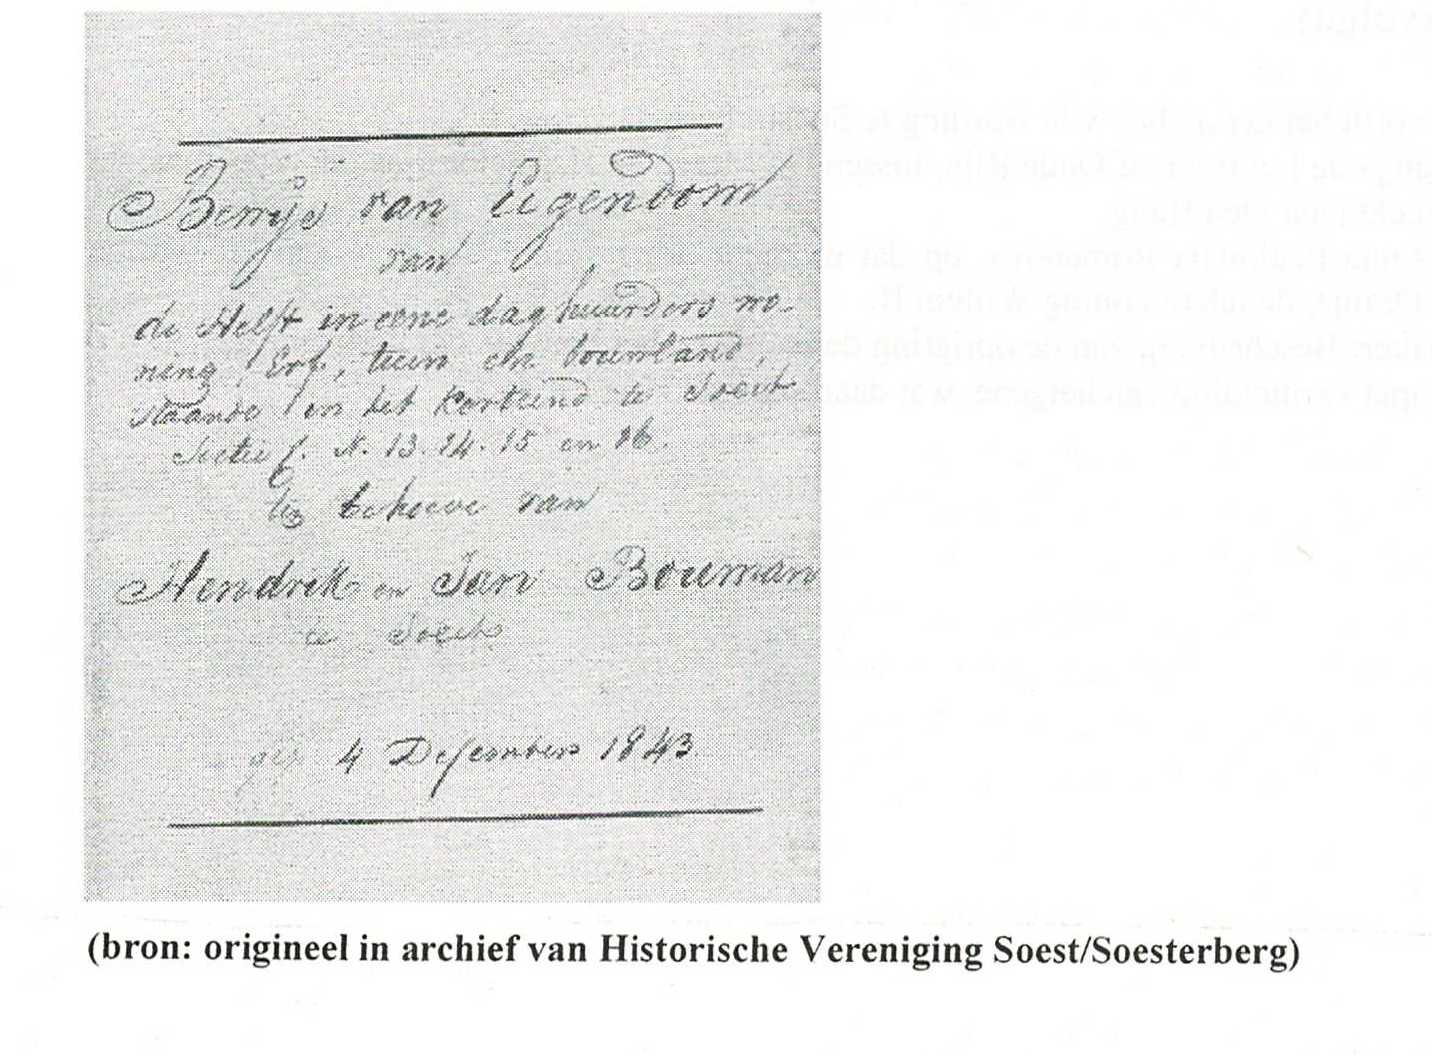 Bewijs van Eigendom
van
de Helft in eene daghuurders wo-
ning, Erf, tuin en bouwland,
staande in het Korteind te Soest
Sectie f. N. 13. 14. 15 en 16.
ten behoeve van
Hendrik en Jan Bouman
te Soest
4 December 1843
(bron: origineel in archief van Historische Vereniging Soest/Soesterberg)